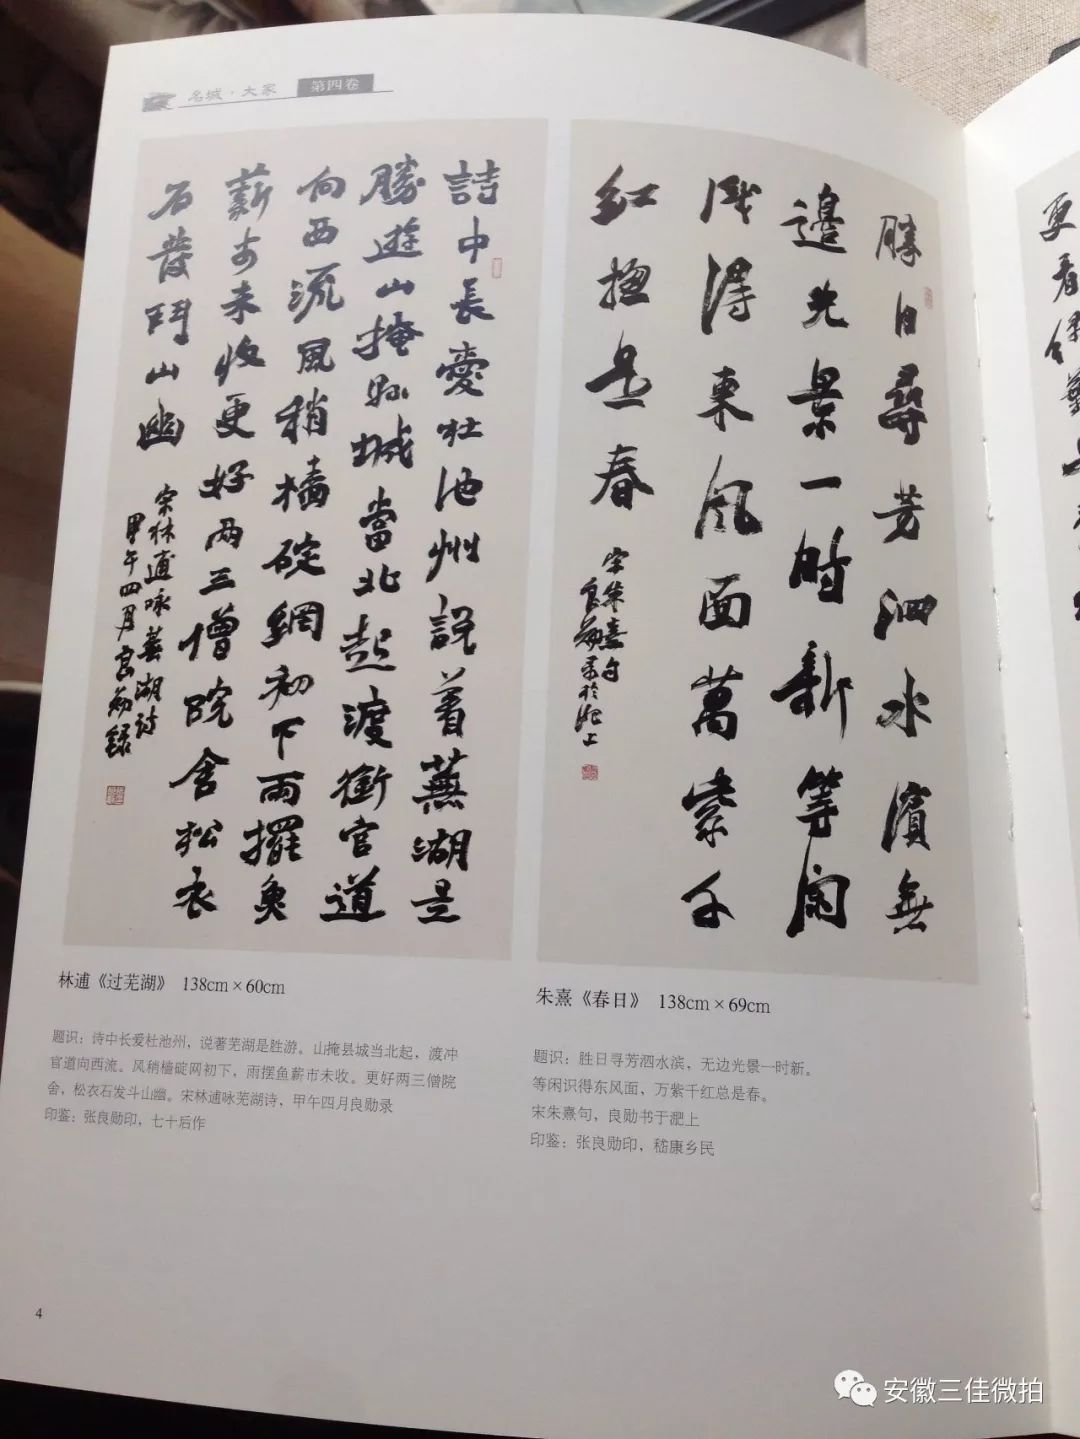 名城·大家 第四卷
詩中長愛杜池州說着蕪湖是
勝遊山掩縣城當北起渡衝官道
向西流風稍檣碇網初下雨擺魚
薪市未收更好兩三僧院舍松衣
石發鬥山幽
宋林逋咏蕪湖詩
甲午四月良勋録
勝日尋芳泗水濱無
邊光景一时新等閑
识得東风面萬紫千
红揔是春
宋朱熹句
良勋書於淝上
林逋《过芜湖》 138cm×60cm
题识：诗中长爱杜池州，说著芜湖是胜游。山掩县城当北起，渡冲
官道向西流。风稍樯碇网初下，雨摆鱼薪市未收。更好两三僧院
舍，松衣石发斗山幽。宋林逋咏芜湖诗，甲午四月良勋录
印鉴：张良勋印，七十后作
朱熹《春日》 138cm×69cm
题识：胜日寻芳泗水滨，无边光景一时新。
等闲识得东风面，万紫千红总是春。
宋朱熹句，良勋书于淝上
印鉴：张良勋印，嵇康乡民
4
更看
安徽三佳微拍